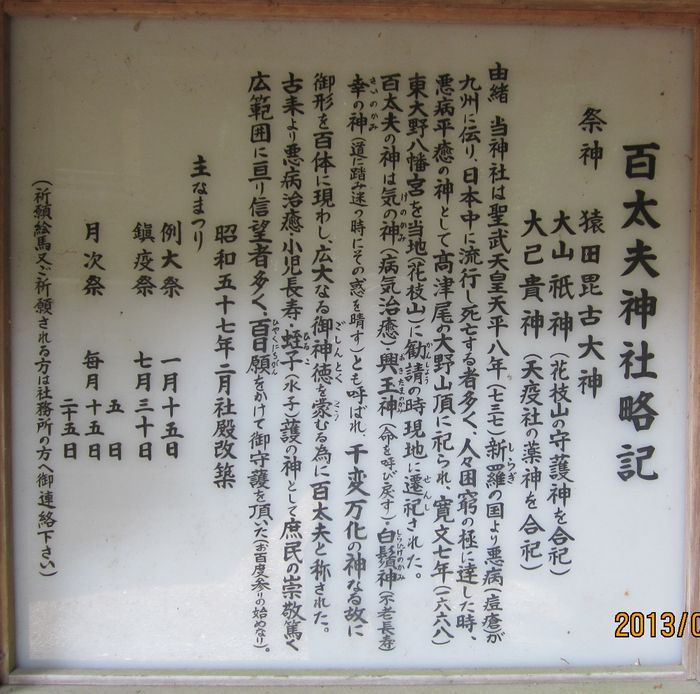 百太夫神社略記
祭神 猿田毘古大神
大山祇神 (花枝山の守護神を合祀)
大己貴神 (天疫社の薬神を合祀)
由緒 当神社は聖武天皇天平八年(七三七)新羅の国より悪病(痘瘡)が
しらぎ
九州に伝り、日本中に流行し死亡する者多く、人々困窮の極に達した時、
悪病平癒の神として高津尾の大野山頂に祀られ、寛文七年(一六六八)
東大野八幡宮を当地(花枝山)に勧請の時現地に遷祀された。
かんじょう せんし
百太夫の神は気の神(病気治癒)・興玉神(命を呼び戻す)・白鬚神(不老長寿)
けのかみ おきたまのかみ しらひげのかみ
幸の神(道に踏み迷つ時にその惑を晴す)とも呼ばれ、千変万化の神なる故に
さいのかみ
御形を百体に現わし、広大なる御神徳を蒙むる為に百太夫と称された。
ごしんとく こう
古来より悪病治癒・小児長寿・蛭子(水子)護の神として庶民の崇敬篤く
ひるこ
広範囲に亘り信望者多く、百日願をかけて御守護を頂いた(お百度参りの始めなり)。
ひゃくにちがん
昭和五十七年二月社殿改築
主なまつり
例大祭 一月十五日
鎮疫祭 七月三十日
月次祭 毎月 五日
十五日
二十五日
(祈願絵馬又ご祈願される方は社務所の方へ御連絡下さい)
2013/0